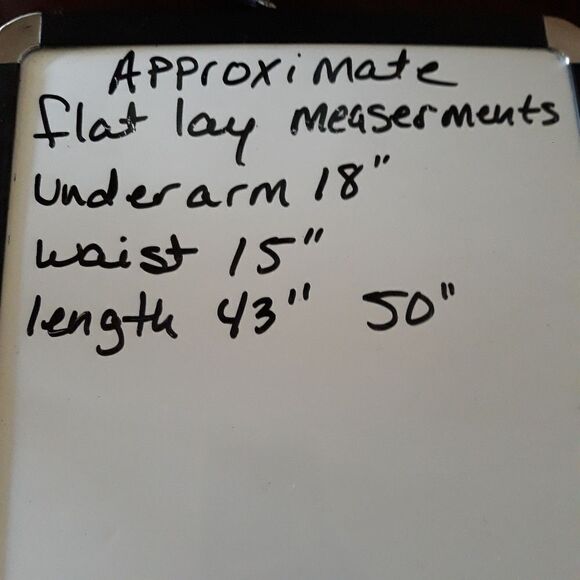 Approximate
flat lay measerments
underarm 18"
waist 15"
length 43" 50"